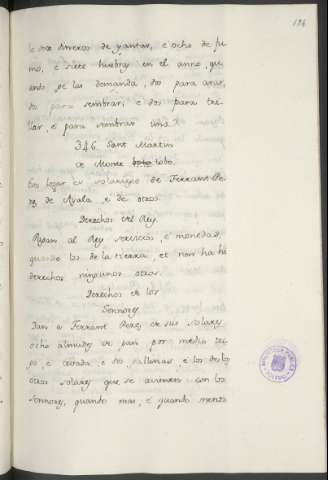 186
le dos dineros de yantar, e ocho de fu
mo, e siete huebras en el anno, qu
ando ge las demanda, dos para arar,
dos para sembrar, e dos para tri
llar, e para sembrar una.
346. Sant Martin
de Monte lobo.
Este logar es solariego de Ferrant Pe
rez de Ayala, e de otros.
Derechos del Rey.
Pagan al Rey servicios, e monedas,
quando los de la tierra, et non ha hi
derechos ningunos otros.
Derechos de los
Sennores.
Dan a Ferrant Perez de sus solares
ocho almudes de pan por medio tri
go, e cevada, e dos gallinas, e los de los
otros solares que se avienen con los
Sennores, quando mas, e quando menos